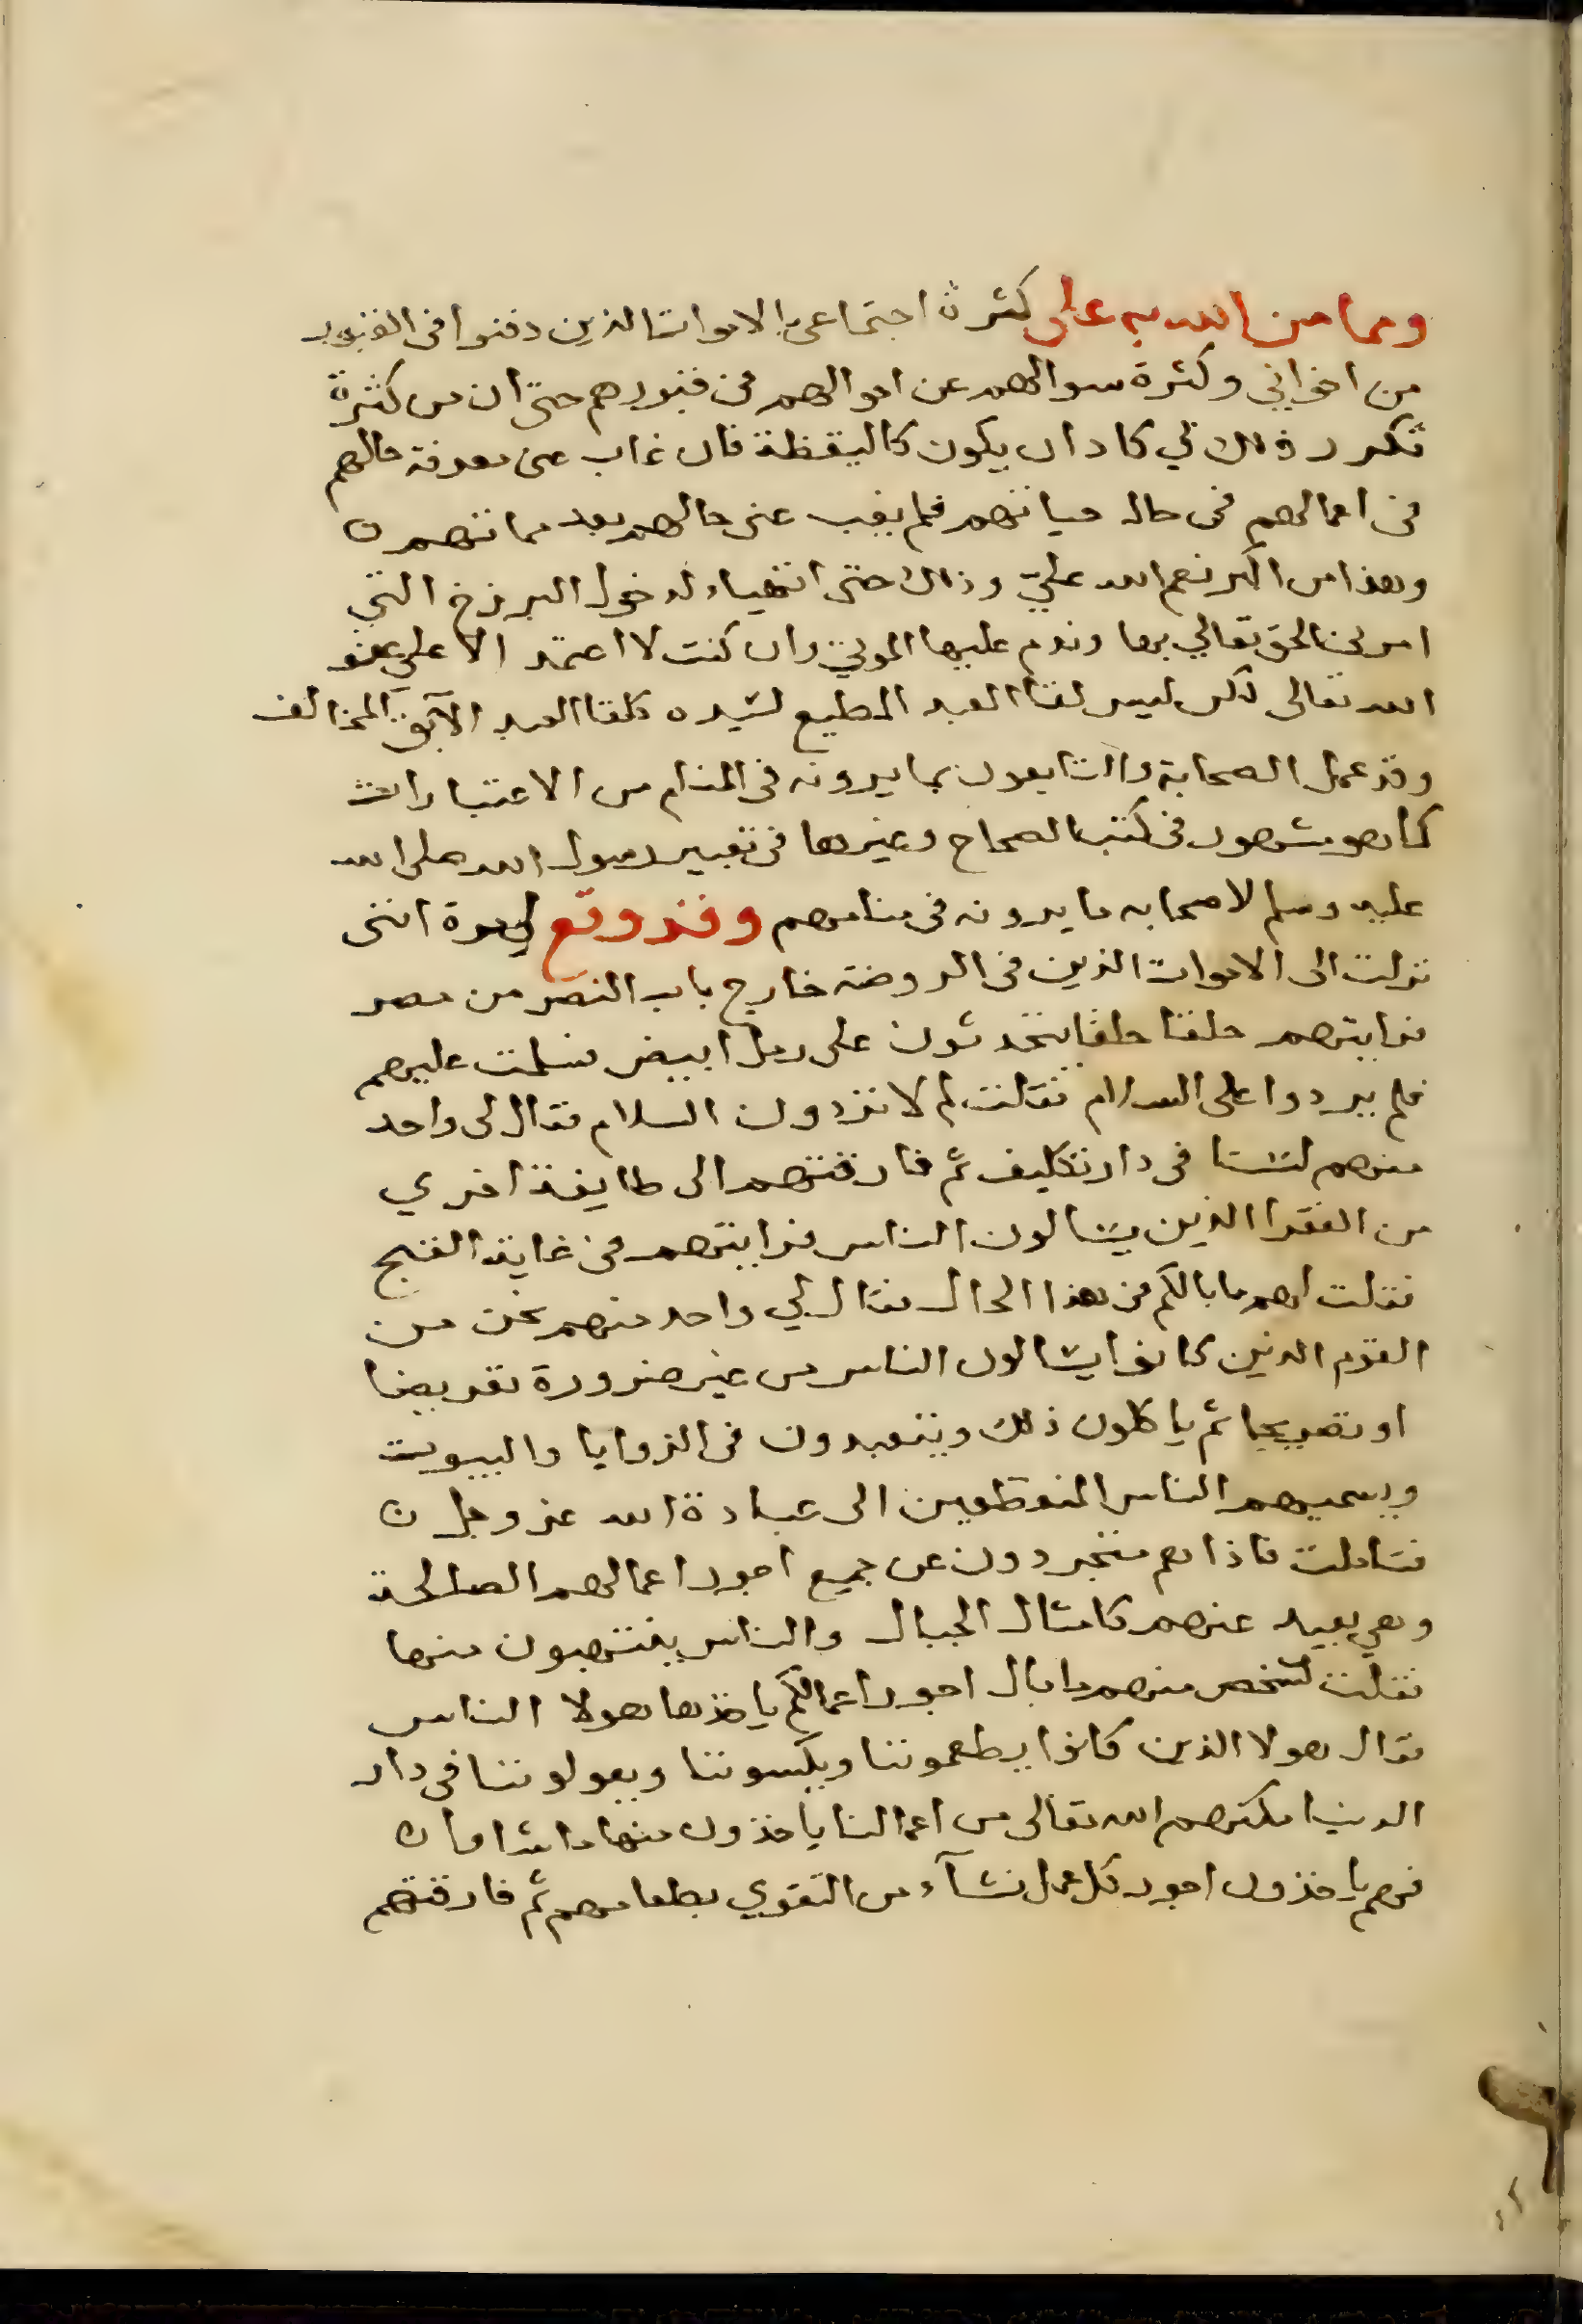 ومما من الله به علي كثرة اجتماعي بالاموات الذين دفنوا في القبور
من اخواني وكثرة سوالهم عن احوالهم في قبورهم حتى ان من كثرة
تكرر ذلك لي كاد ان يكون كاليقظة فان غاب عني معرفة حالهم
في اعمالهم في حال حياتهم فلم يغب عني حالهم بعد مماتهم ن
وهذا من اكبر نعم الله عليّ وذلك حتى اتهياء لدخول البرزخ التي
امرني الحق تعالي بها وندم عليها الموتي وان كنت لا اعتمد الا علي عفو
الله تعالى لكن ليس لقا العبد المطيع لسيده كلقا العبد الآبق المخالف
وقد عمل الصحابة والتابعون بما يرونه في المنام من الاعتبارات
كما هو مشهور في كتب الصحاح وغيرها في تعبير رسول الله صلى الله
عليه وسلم لاصحابه ما يرونه في منامهم وقد وقع لي مرة انني
نزلت الى الاموات الذين في الروضة خارج باب النصر من مصر
فرايتهم حلقا حلقا يتحدثون على رمل ابيض فسلمت عليهم
فلم يردوا على السلام فقلت لم لا تردون السلام فقال لى واحد
منهم لسنا في دار تكليف ثم فارقتهم الى طايفة اخري
من الفقرا الذين يسالون الناس فرايتهم في غاية القبح
فقلت لهم ما بالكم في هذا الحال فقال لي واحد منهم نحن من
القوم الذين كانوا يسالون الناس من غير ضرورة تعريضا
او تصريحا ثم ياكلون ذلك ويتعبدون في الزوايا والبيوت
ويسميهم الناس المنقطعين الى عبادة الله عز وجل ن
فتاملت فاذا هم متجردون عن جميع اجور اعمالهم الصالحة
وهي بعيد عنهم كامثال الجبال والناس ينتهبون منها
فقلت لشخص منهم ما بال اجور اعمالكم ياخذها هولا الناس
فقال هولا الذين كانوا يطعموننا ويكسوننا ويعولوننا في دار
الدنيا مكنهم الله تعالى من اعمالنا ياخذون منها ما شاوا ن
فهم ياخذون اجور كل عمل نشآء من التقوي بطعامهم ثم فارقتهم